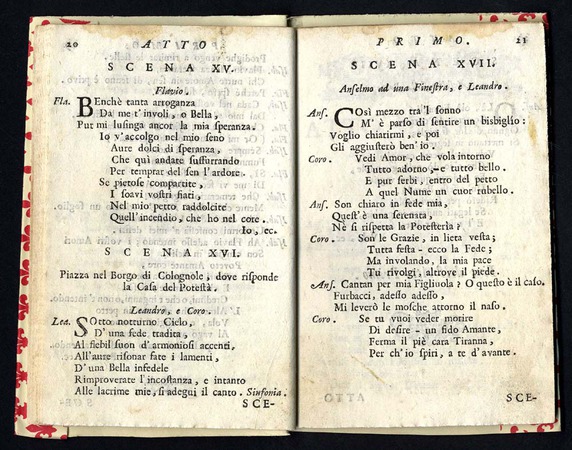 20 ATTO
SCENA XV.
Flavio.
Fla. BEnchè tanta arroganza
Da me t'involi, o Bella,
Put mi lusinga ancor la mia speranza.
Io v'accolgo nel mio seno
Aure dolci di speranza,
Che quì andate susſurrando
Per temprar del sen l'ardore.
Se pietose compartite,
I soavi vostri fiati,
Nel mio petto raddolcite
Quell'incendio, che ho nel core.
Io, ec.
SCENA XVI.
Piazza nel Borgo di Colognole, dove risponde
la Casa del Potestà.
Leandro, e Coro.
Lea. SOtto notturno Cielo,
D'una fede tradita,
Al flebil suon d'armoniosi accenti,
All'aure risonar fate i lamenti,
D'una Bella infedele
Rimproverate l'incostanza, e intanto
Alle lacrime mie, si adegui il canto. Sinfonia.
SCE-
PRIMO. 21
SCENA XVII.
Anselmo ad una Finestra, e Leandro.
Ans. COsì mezzo tra'l sonno
M'è parso di sentire un bisbiglio:
Voglio chiatirmi, e poi
Gli aggiusterò ben'io.
Coro. Vedi Amor, che vola intorno
Tutto adorno, - e tutto bello.
E pur serbi, entro del petto
A quel Nume un cuor rubello.
Ans. Son chiaro in fede mia,
Quest'è una serenata,
Nè si rispetta la Potesteria?
Coro. Son le Grazie, in lieta vesta;
Tutta festa - ecco la Fede;
Ma involando, la mia pace
Tu rivolgi, altrove il piede.
Ans. Cantan per mia Figliuola? O questo è il caso.
Furbacci, adesso adesso,
Mi leverò le mosche attorno il naso.
Coro. Se tu vuoi veder morire
Di desire - un fido Amante,
Ferma il piè cara Tiranna,
Per ch'io spiri, a te d'avante.
SCE-